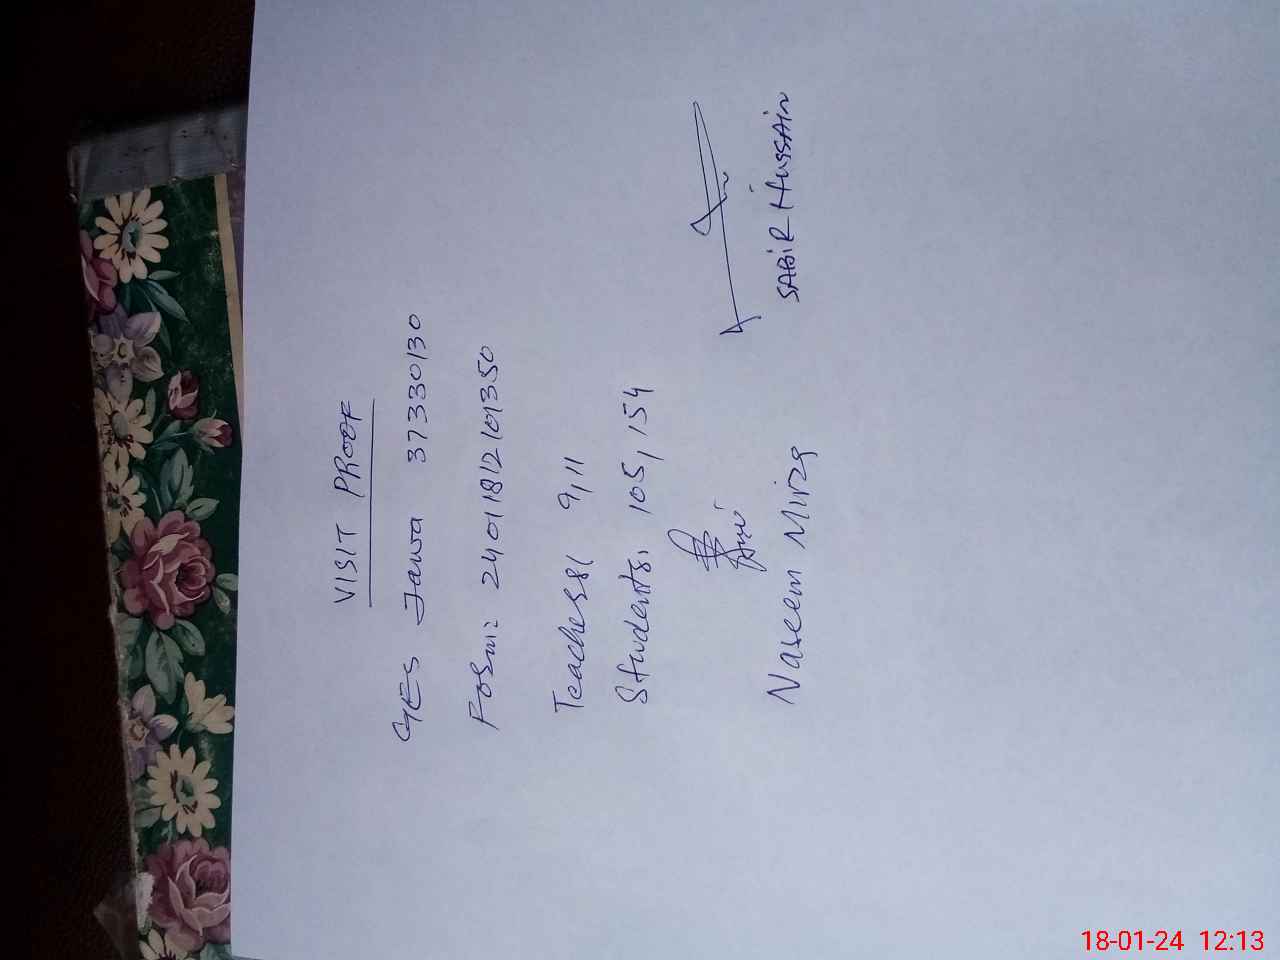 VISIT PROOF
GES Jawa 37330130
Form: 24011812101350
Teachers: 9, 11
Students: 105, 154
Naseem Mirza
SABIR Hussain
18-01-24 12:13